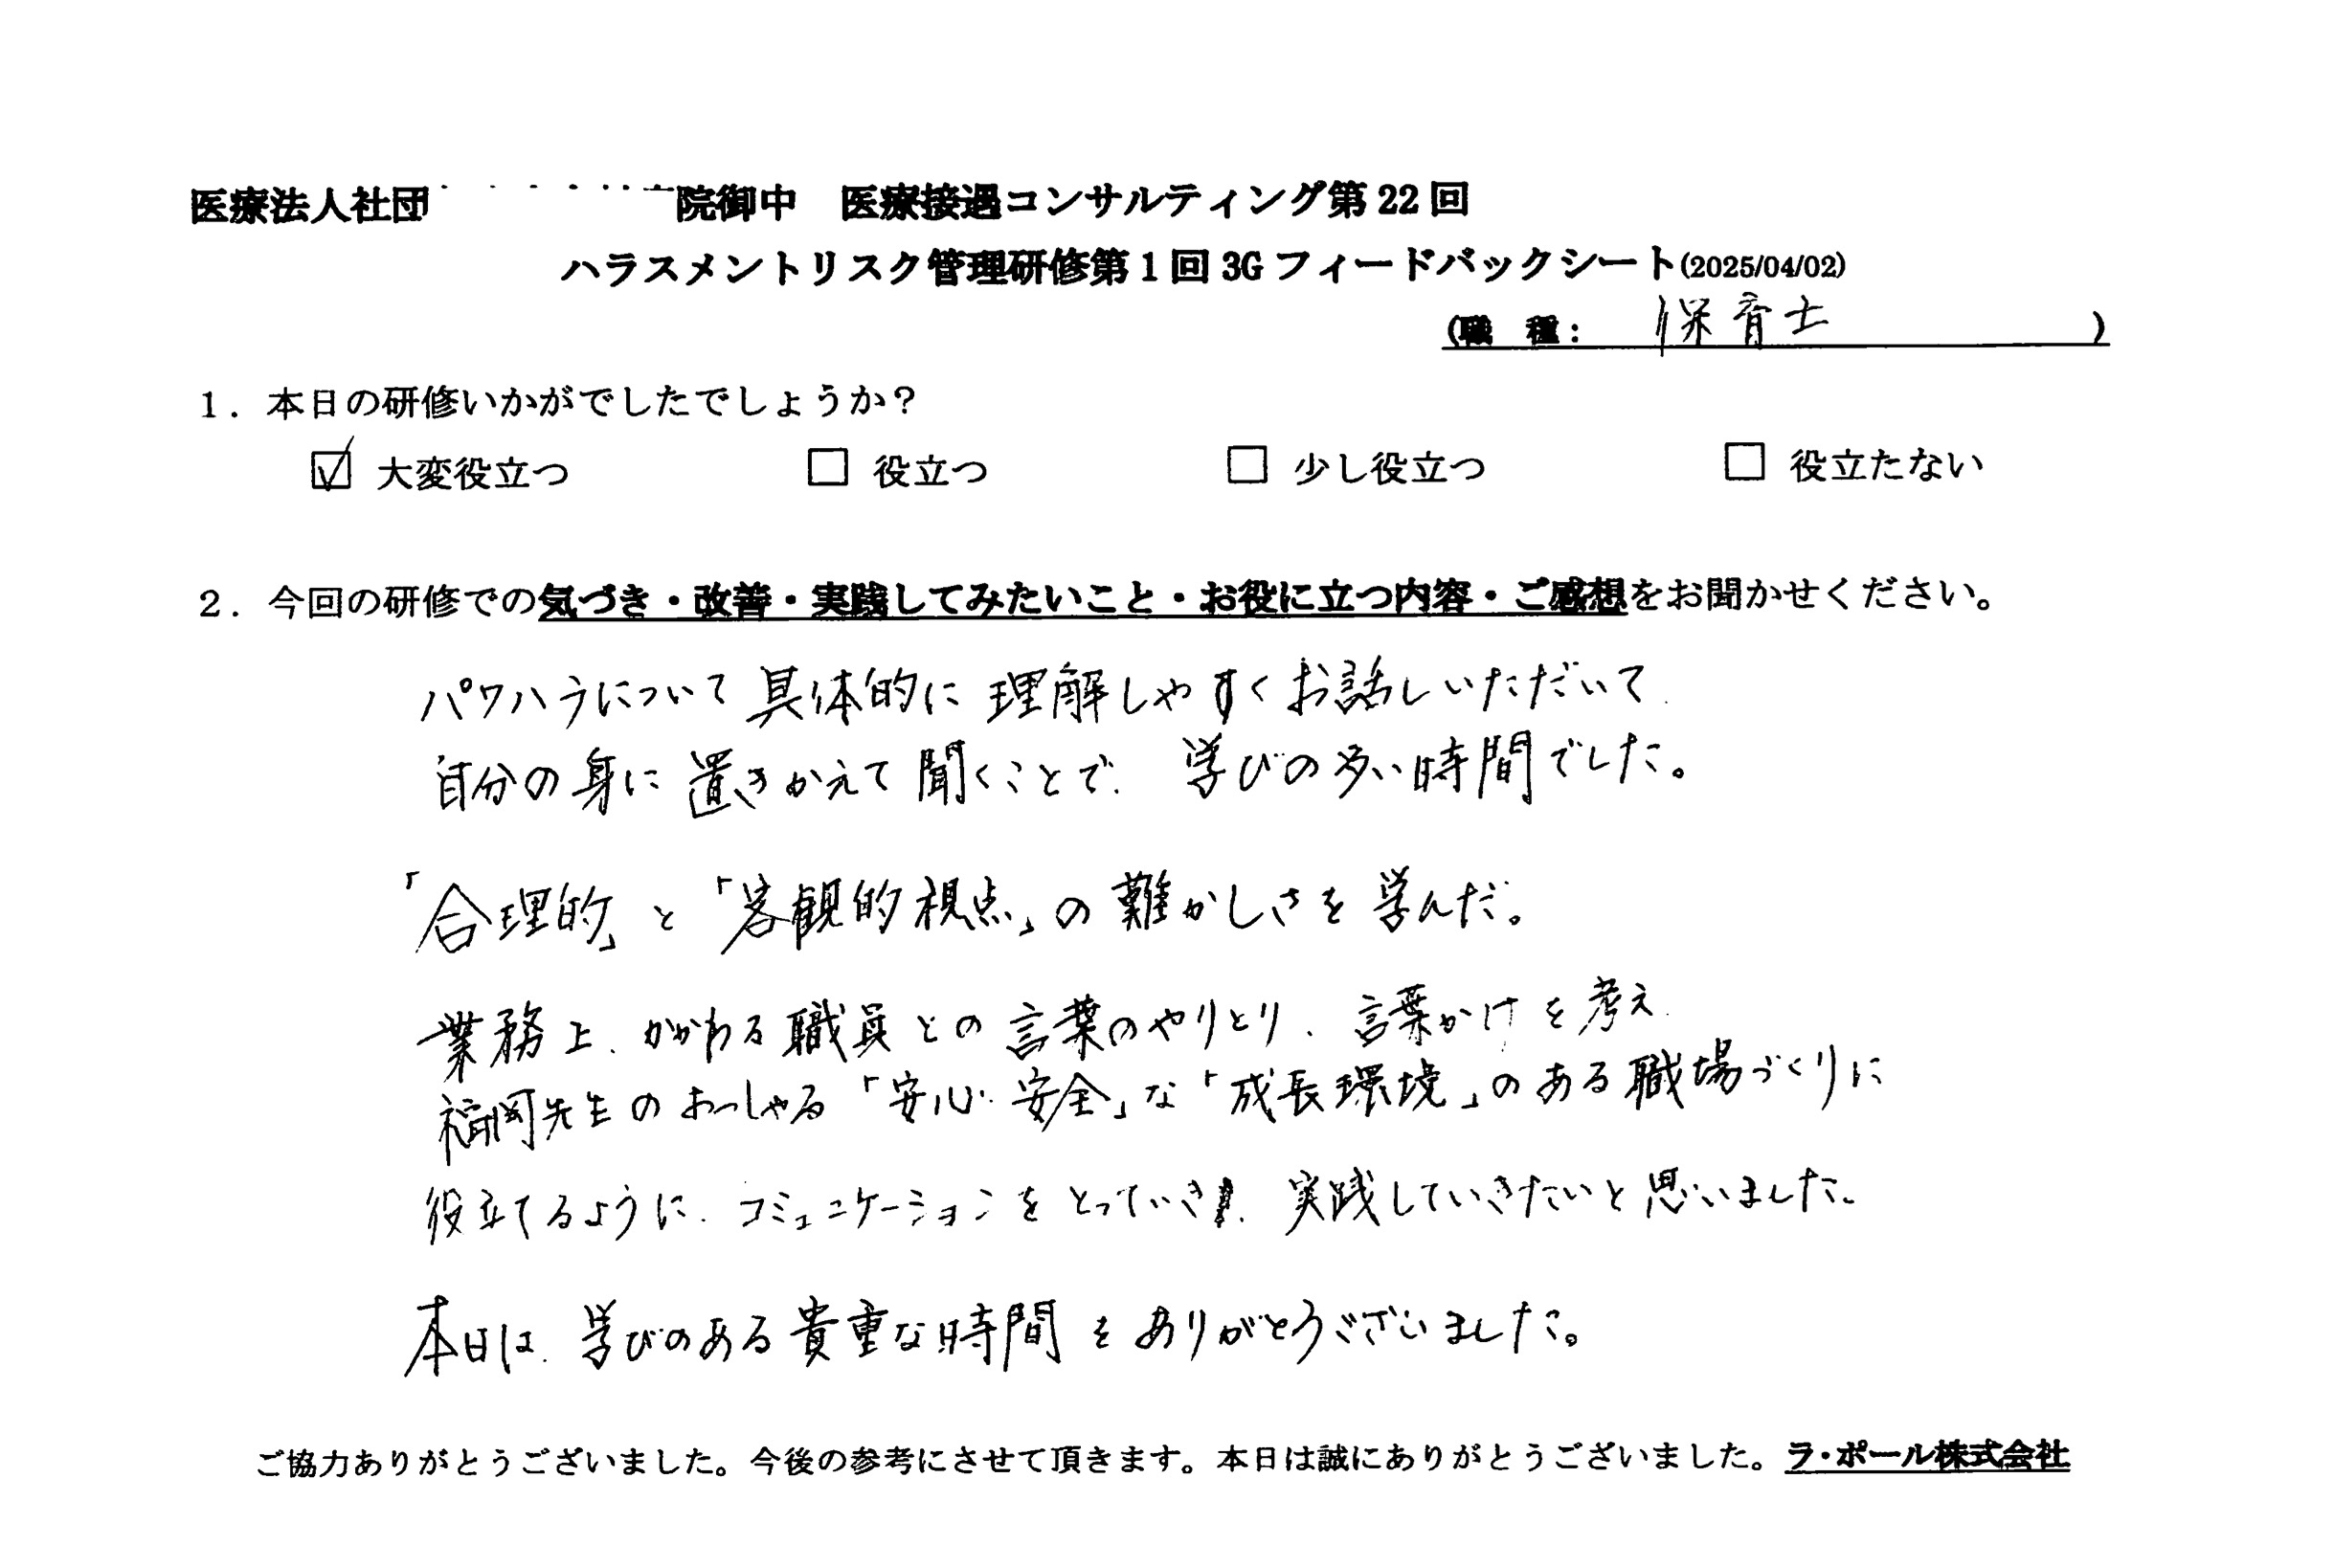 医療法人社団　院御中　医療接遇コンサルティング第22回
ハラスメントリスク管理研修第1回3Gフィードバックシート(2025/04/02)
(職　種：　保育士　)
1. 本日の研修いかがでしたでしょうか?
☑ 大変役立つ　□ 役立つ　□ 少し役立つ　□ 役立たない
2. 今回の研修での気づき・改善・実践してみたいこと・お役に立つ内容・ご感想をお聞かせください。
パワハラについて具体的に理解しやすくお話しいただいて
自分の身に置きかえて聞くことで、学びの多い時間でした。
「合理的」と「客観的視点」の難かしさを学んだ。
業務上、かかわる職員との言葉のやりとり、言葉かけを考え、
福岡先生のおっしゃる「安心・安全」な「成長環境」のある職場づくりに
役立てるように、コミュニケーションをとっていき、実践していきたいと思いました。
本日は、学びのある貴重な時間をありがとうございました。
ご協力ありがとうございました。今後の参考にさせて頂きます。本日は誠にありがとうございました。ラ・ポール株式会社